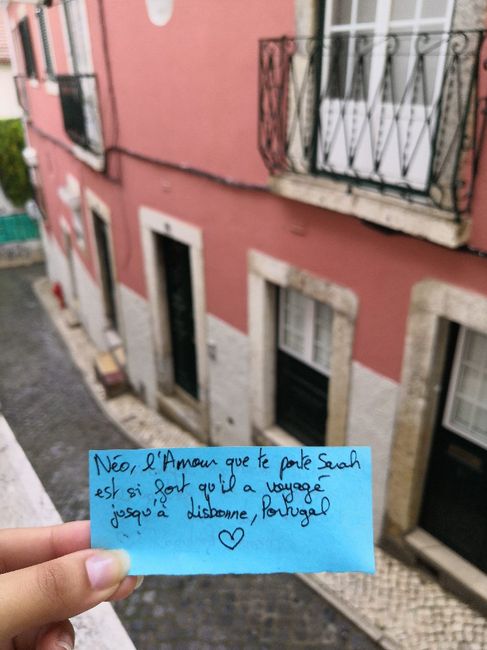 Néo, l'Amour que te porte Sarah
est si fort qu'il a voyagé
jusqu'à Lisbonne, Portugal
♡